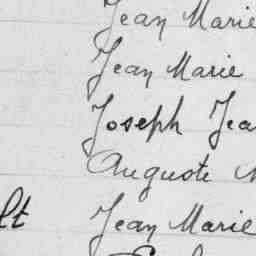 Jean Marie
Jean Marie
Joseph Jea
Auguste
lt Jean Marie